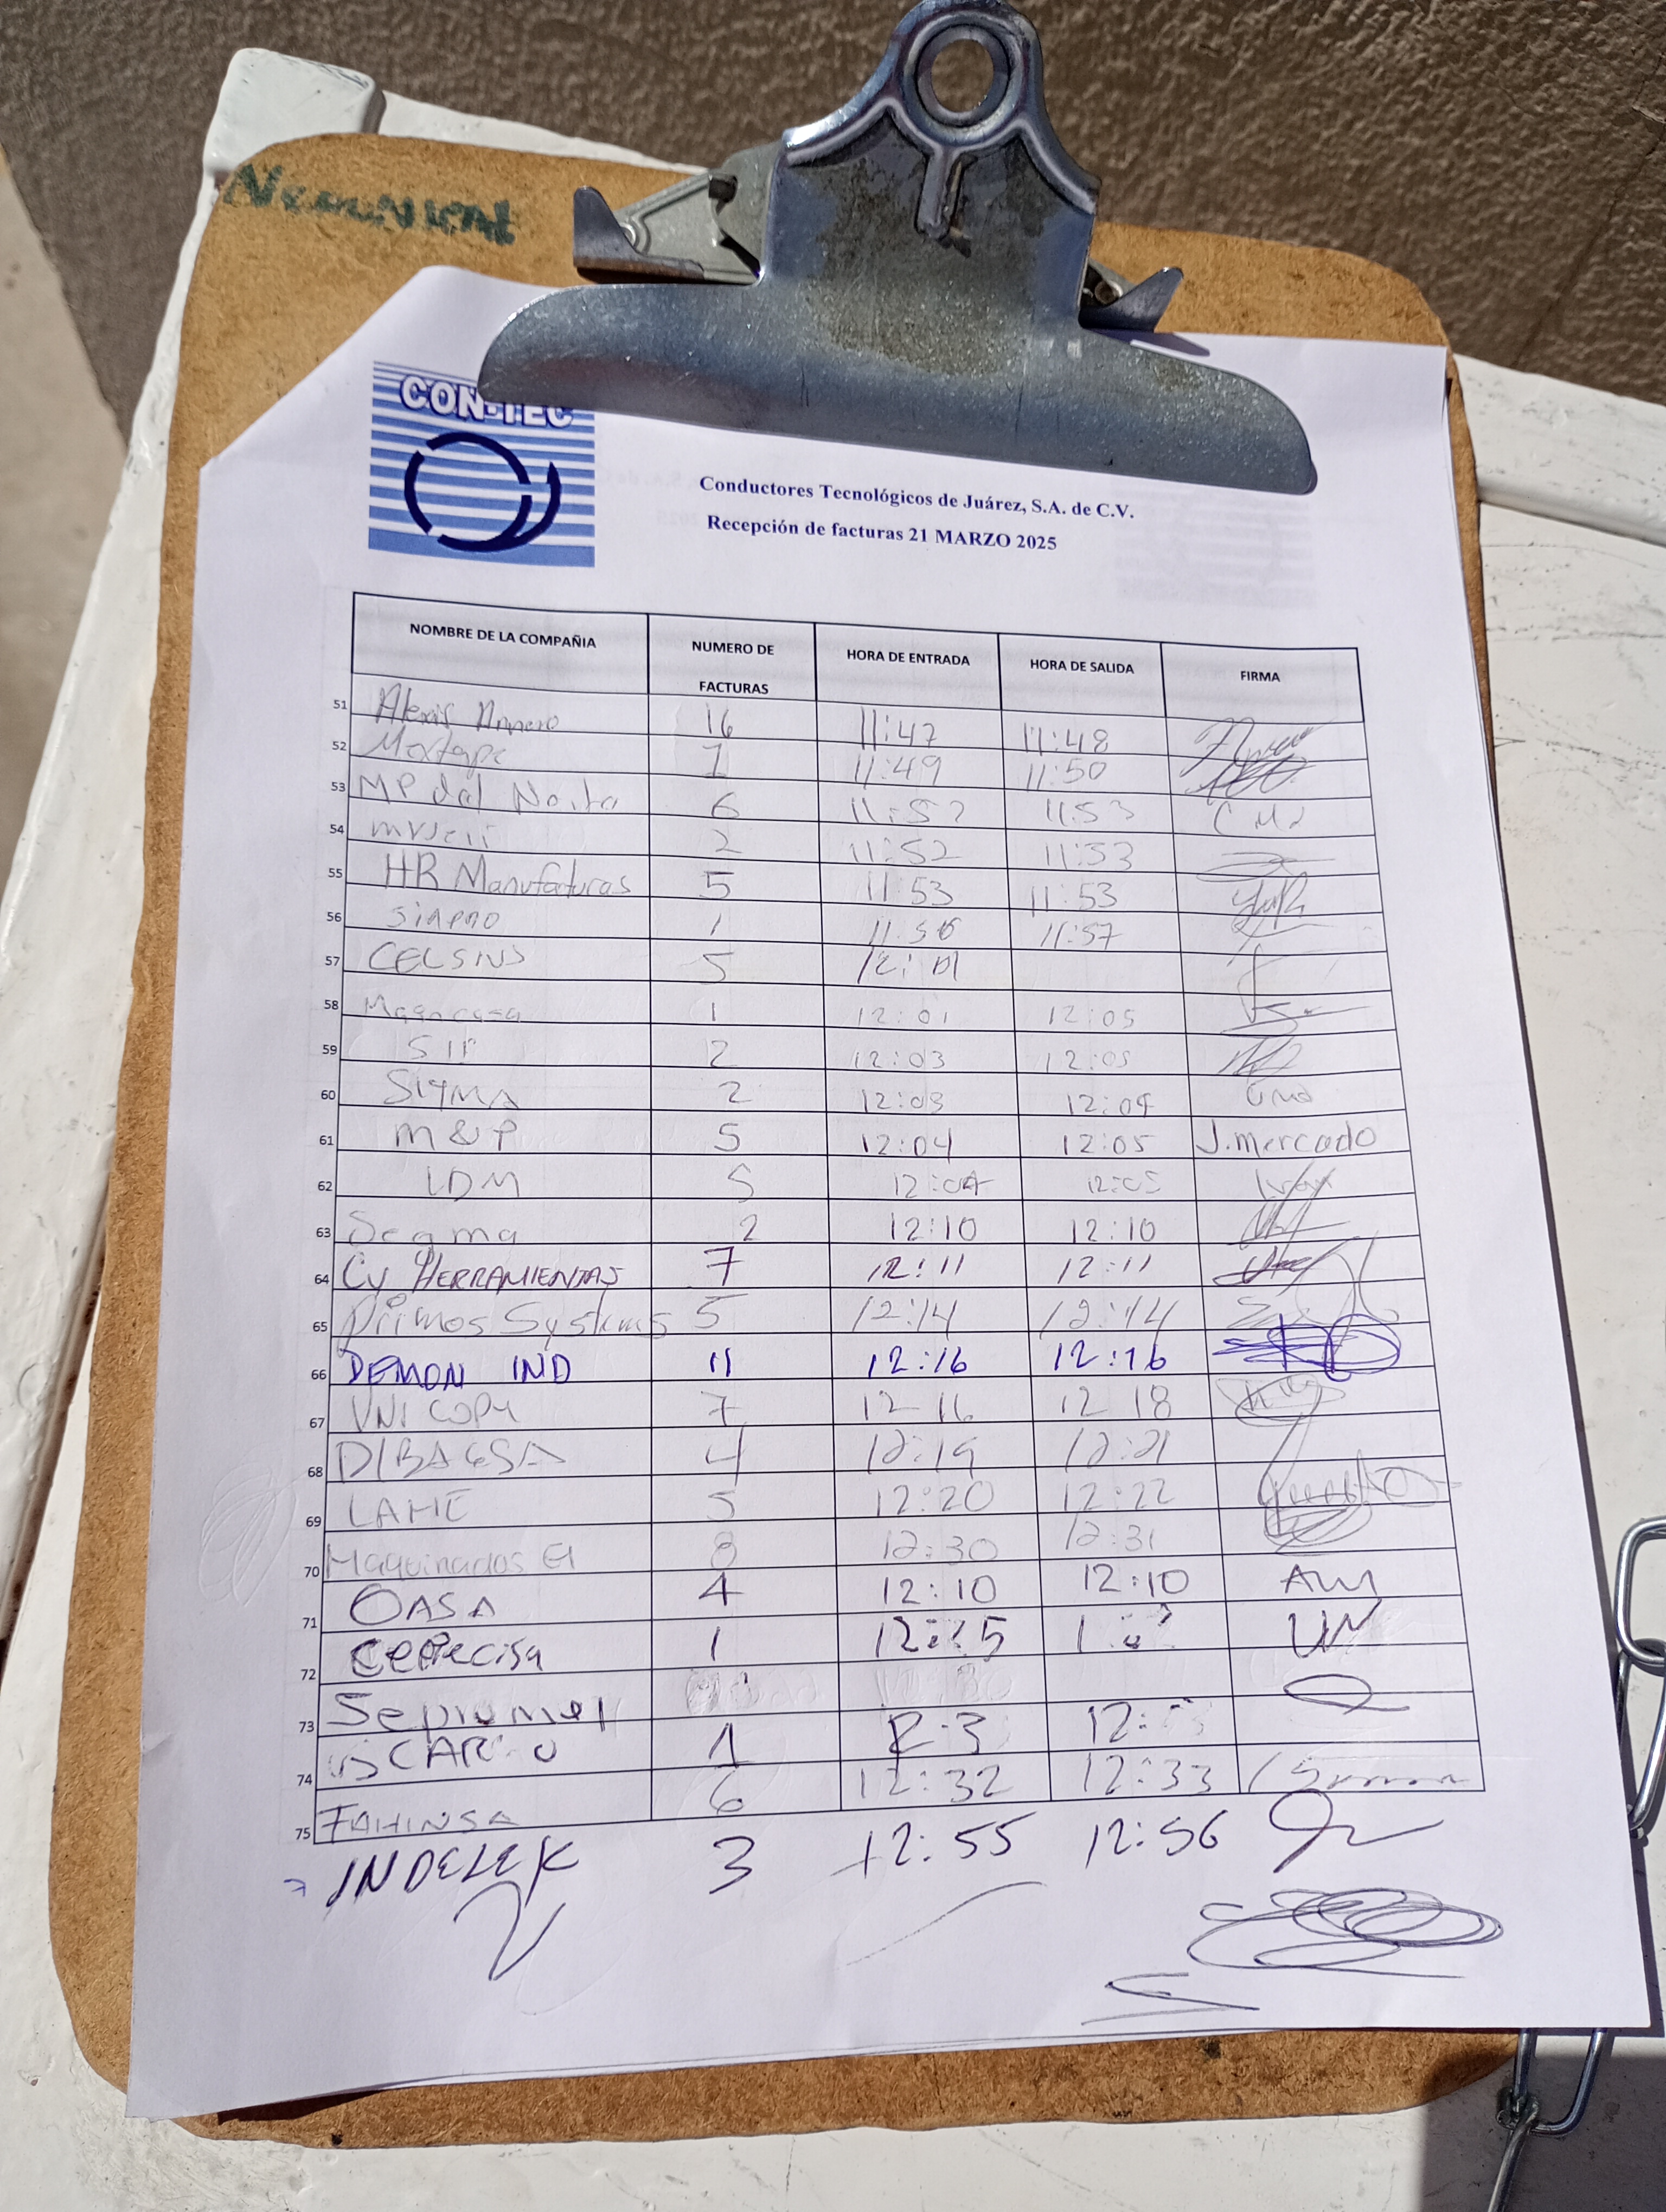 CON-TEC
Conductores Tecnológicos de Juárez, S.A. de C.V.
Recepción de facturas 21 MARZO 2025
NOMBRE DE LA COMPAÑIA NUMERO DE FACTURAS HORA DE ENTRADA HORA DE SALIDA FIRMA
51 Alexis 16 11:47 11:48
52 1 11:49 11:50
53 MP del Norte 6 11:52 11:53
54 2 11:52 11:53
55 HR Manufacturas 5 11:53 11:53
56 1 11:56 11:57
57 CELSIUS 5 12:01
58 1 12:01 12:05
59 SIP 2 12:03 12:05
60 SIGMA 2 12:03 12:04
61 M&P 5 12:04 12:05 J.mercado
62 LDM 5 12:04 12:05
63 Segma 2 12:10 12:10
64 Cy HERRAMIENTAS 7 12:11 12:11
65 Primos Systems 5 12:14 12:14
66 DEMON IND 11 12:16 12:16
67 UNI COPY 7 12 16 12 18
68 DIBAGSA 4 12:19 12:21
69 LAHE 5 12:20 12:22
70 Maquinados El 8 12:30 12:31
71 OASA 4 12:10 12:10
72 1
73
74 1
75 FAHINSA 6 12:32 12:33
INDELEK 3 12:55 12:56